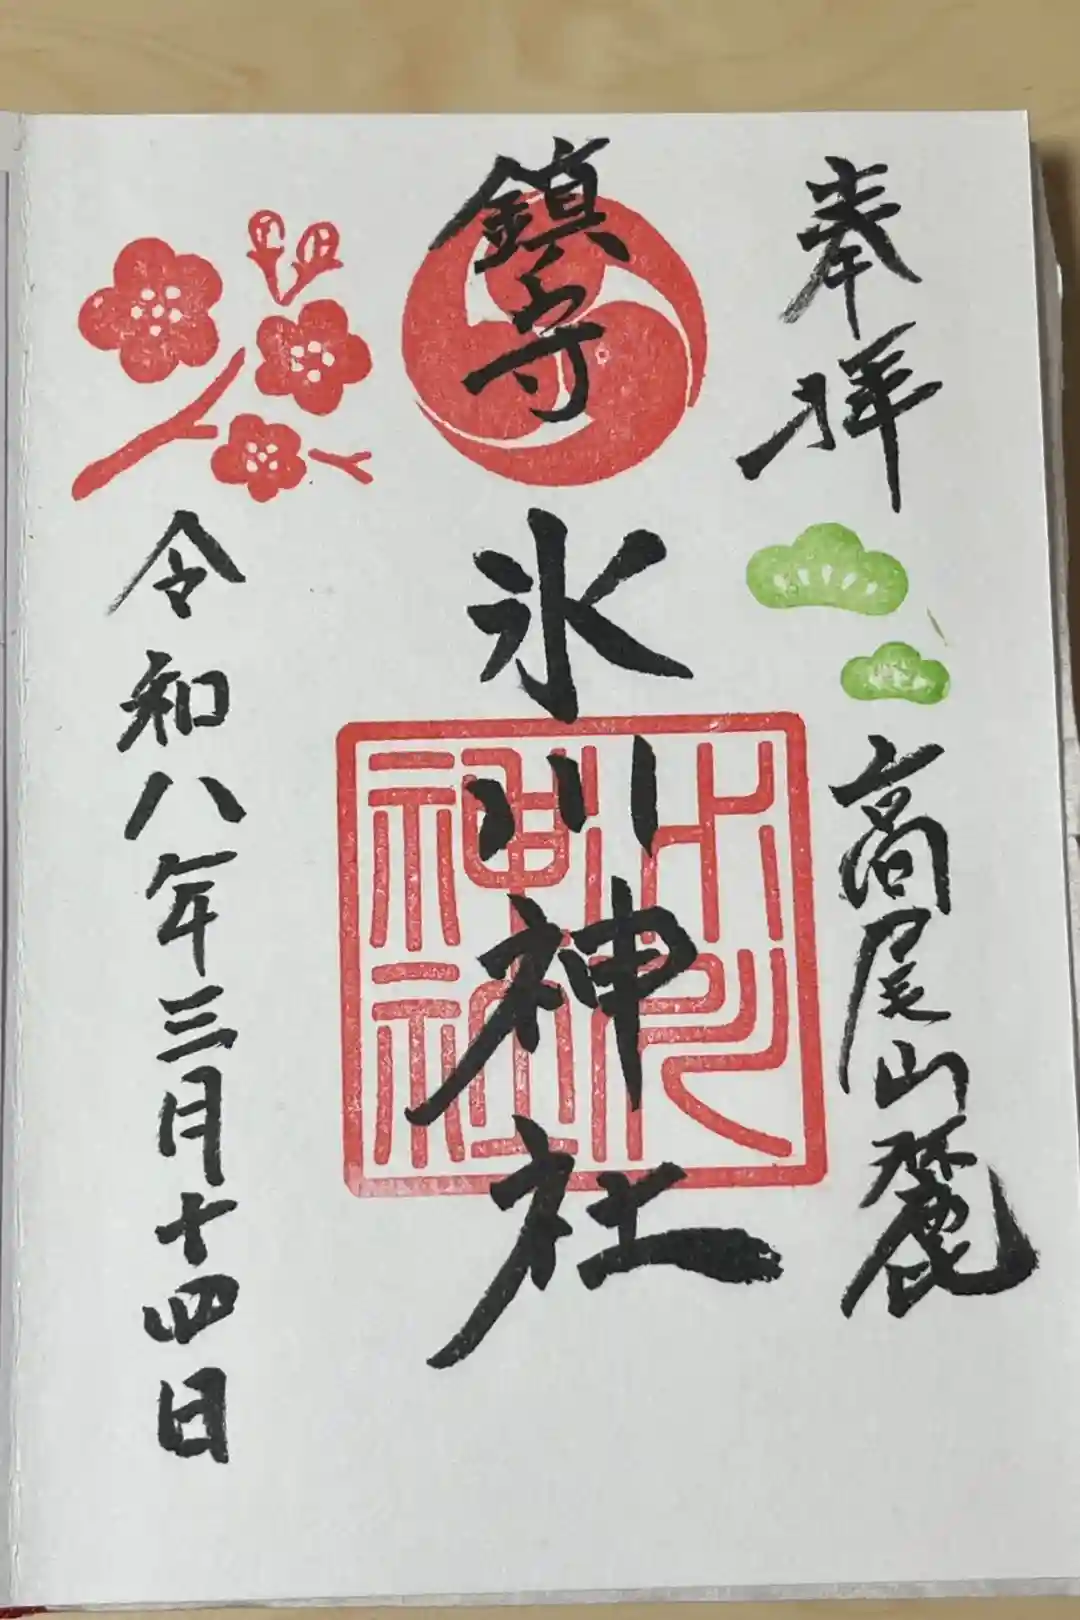 奉拝
高尾山麓
鎮守
氷川神社
令和八年三月十四日